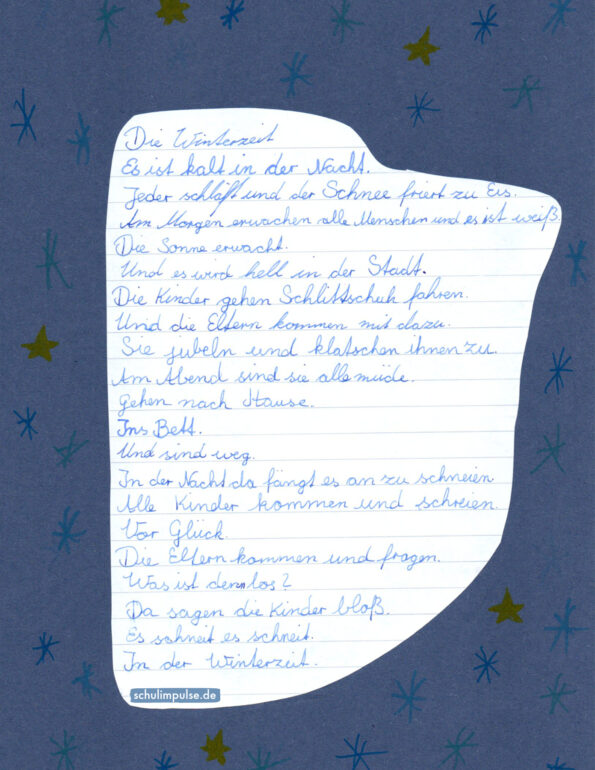 Die Winterzeit
Es ist kalt in der Nacht.
Jeder schläft und der Schnee friert zu Eis.
Am Morgen erwachen alle Menschen und es ist weiß.
Die Sonne erwacht.
Und es wird hell in der Stadt.
Die Kinder gehen Schlittschuh fahren.
Und die Eltern kommen mit dazu.
Sie jubeln und klatschen ihnen zu.
Am Abend sind sie alle müde.
Gehen nach Hause.
Ins Bett.
Und sind weg.
In der Nacht da fängt es an zu schneien
Alle Kinder kommen und schreien.
Vor Glück.
Die Eltern kommen und fragen.
Was ist denn los?
Da sagen die Kinder bloß.
Es schneit es schneit.
In der Winterzeit.
schulimpulse.de